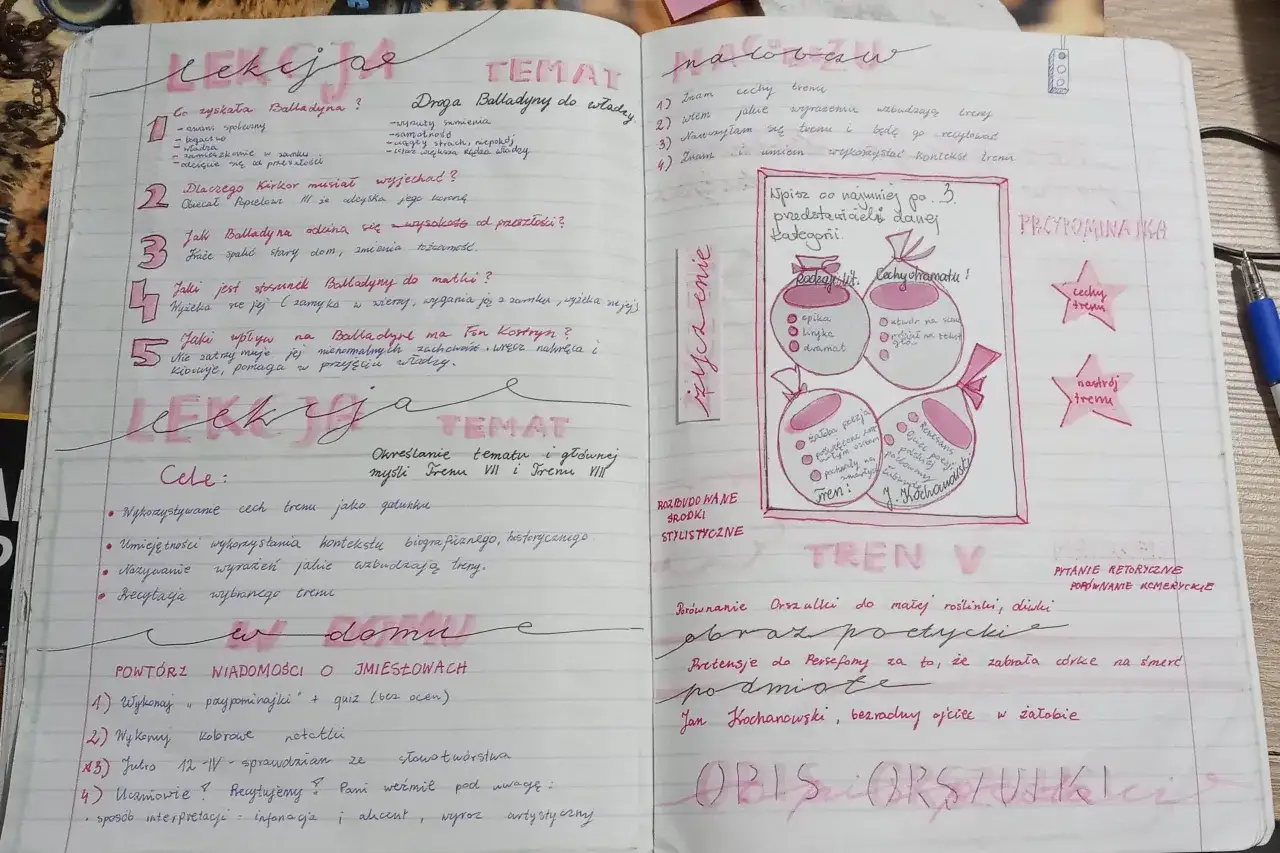 LEKCJA
lekcja
TEMAT
Droga Balladyny do władzy
1 Co zyskała Balladyna?
- awans społeczny
- bogactwo
- władza
- zamieszkanie w zamku
- odcięcie się od przeszłości
- wyrzuty sumienia
- samotność
- ciągły strach, niepokój
- coraz większa żądza władzy
2 Dlaczego Kirkor musiał wyjechać?
Obiecał Popielowi III że odzyska jego koronę
3 Jak Balladyna odcina się od przeszłości?
Każe spalić stary dom, zmienia tożsamość.
4 Jaki jest stosunek Balladyny do matki?
Wyrzeka się jej (zamyka w wierzy, wygania ją z zamku, wyrzeka się jej)
5 Jaki wpływ na Balladynę ma Fon Kostryn?
Nie zatrzymuje jej nienormalnych zachowań, wręcz nakręca i
kieruje, pomaga w przejęciu władzy.
LEKCJA
lekcja
TEMAT
Określanie tematu i głównej
myśli Trenu VII i Trenu VIII
Cele:
• Wykorzystywanie cech trenu jako gatunku
• Umiejętności wykorzystania kontekstu biograficznego, historycznego.
• Nazywanie wyrażeń jakie wzbudzają treny.
• Recytacja wybranego trenu
W DOMU
w domu
POWTÓRZ WIADOMOŚCI O IMIESŁOWACH
1) Wykonaj „przypominajki" + quiz (bez ocen)
2) Wykonuj kolorowe notatki
3) Jutro 12-IV - sprawdzian ze słowotwórstwa
4) Uczniowie! Recytujemy! Pani weźmie pod uwagę:
• sposób interpretacji - intonacja i akcent, wyraz artystyczny
NACOBEZU
nacobezu
1) Znam cechy trenu
2) wiem jakie wyrażenia wzbudzają treny
3) Nauczyłam się trenu i będę go recytować
4) Znam i umiem wykorzystać kontekst trenu
Wpisz co najmniej po 3.
przedstawicieli danej
kategorii.
Rodzaje lit.
epika
liryka
dramat
Cechy dramatu!
utwór na
podział na tekst
Żałoba poezja
poświęcone
zmarłym osobom
pochwały
Tren!
Renesans
Ojciec poezji
polskiej
J. Kochanowski
ćwiczenie
PRZYPOMINAJKA
cechy
trenu
nastrój
trenu
ROZBUDOWANE
ŚRODKI
STYLISTYCZNE
TREN V
PYTANIE RETORYCZNE
PORÓWNANIE HOMERYCKIE
Porównanie Orszulki do małej roślinki, oliwki
obraz poetycki
Pretensje do Persefony za to, że zabrała córkę na śmierć
podmiot
Jan Kochanowski, bezradny ojciec w żałobie
OBIS ORSZULKI